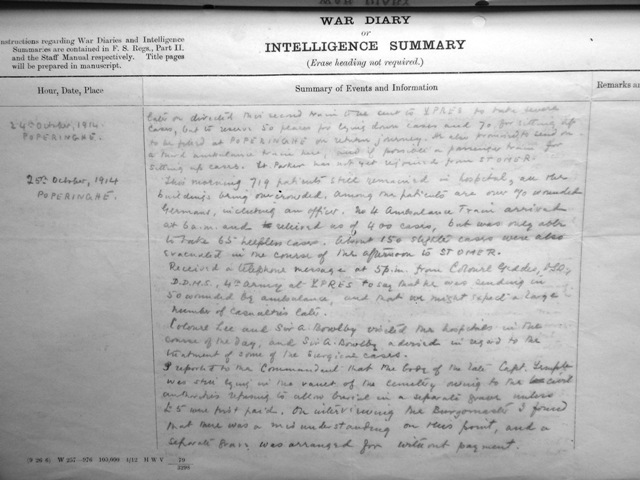 WAR DIARY
or
INTELLIGENCE SUMMARY
(Erase heading not required.)
nstructions regarding War Diaries and Intelligence
Summaries are contained in F. S. Regs., Part II.
and the Staff Manual respectively. Title pages
will be prepared in manuscript.
Hour, Date, Place
Summary of Events and Information
Remarks an
24th October, 1914
POPERINGHE.
later on directed this second train to be sent to YPRES to take severe
cases, but to reserve 50 places for lying down cases and 70 for sitting up
to be filled at POPERINGHE on return journey. He also promised to send on
a third ambulance train here, and if possible a passenger train for
sitting up cases. Lt. Parker has not yet rejoined from ST OMER.
25th October, 1914
POPERINGHE.
This morning 719 patients still remained in hospital, all the
buildings being overcrowded, among our patients are wounded
Germans, including an officer. No 4 Ambulance Train arrived
at 6 a.m. and relieved us of 400 cases, but was only able
to take 65 helpless cases. About 150 slighter cases were also
evacuated in the course of the afternoon to ST OMER.
Received a telephone message at 5 p.m. from Colonel Geddes,
D.D.M.S., 4th Army at YPRES to say that he was sending in
50 wounded by ambulance, and that we might expect a large
number of casualties later.
Colonel Lee and Sir A. Bowlby visited the hospitals in the
course of the day, and Sir A. Bowlby advised in regard to the
treatment of some of the surgical cases.
I reported to the Commandant that the body of the late Capt.
was still lying in the vault of the cemetery owing to the civil
authorities refusing to allow burial in a separate grave unless
£5 were first paid. On interviewing the Burgomaster I found
that there was a misunderstanding on this point, and a
separate grave was arranged for without payment.
(9 26 6) W 257—976 100,000 4/12 H W V 79/3298